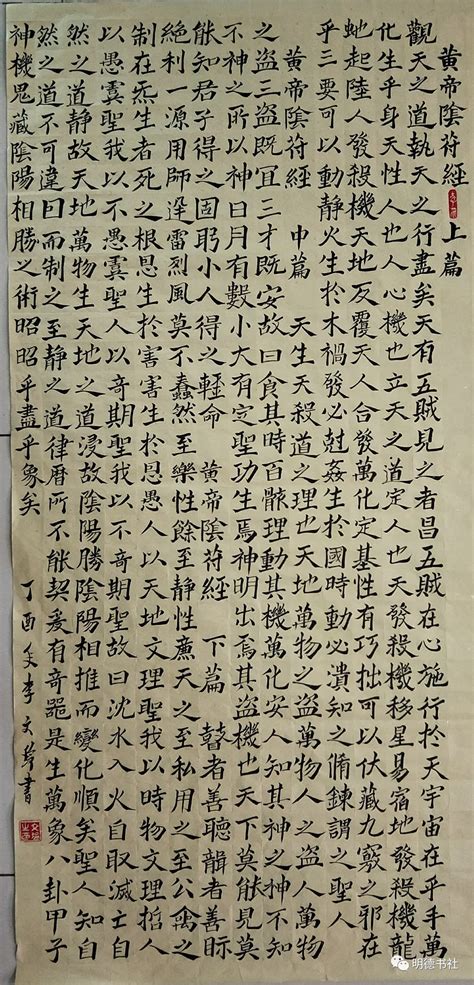 黄帝陰符經 上篇
觀天之道執天之行盡矣天有五賊見之者昌五賊在心施行於天宇宙在乎手萬
化生乎身天性人也人心機也立天之道定人也天發殺機移星易宿地發殺機龍
虵起陸人發殺機天地反覆天人合發萬化定基性有巧拙可以伏藏九竅之邪在
乎三要可以動靜火生於木禍發必尅姦生於國時動必潰知之俻鍊謂之聖人
黄帝陰符經 中篇 天生天殺道之理也天地萬物之盜萬物人之盜人萬物
之盜三盜既宜三才既安故曰食其時百骸理動其機萬化安人知其神之神不知
不神之所以神日月有數小大有定聖功生焉神明出焉其盜機也天下莫能見莫
能知君子得之固躬小人得之輕命 黄帝陰符經 下篇 瞽者善聽聾者善眎
絶利一源用師迅雷烈風莫不蠢然至樂性餘至靜性廉天之至私用之至公禽之
制在炁生者死之根恩生於害害生於恩愚人以天地文理聖我以時物文理哲人
以愚虞聖我以不愚虞聖人以奇期聖我以不奇期聖故曰沈水入火自取滅亡自
然之道静故天地萬物生天地之道浸故陰陽勝陰陽相推而變化順矣聖人知自
然之道不可違因而制之至静之道律曆所不能契爰有奇噐是生萬象八卦甲子
神機鬼藏陰陽相勝之術昭昭乎盡乎象矣 丁酉 李文 書
明德书社